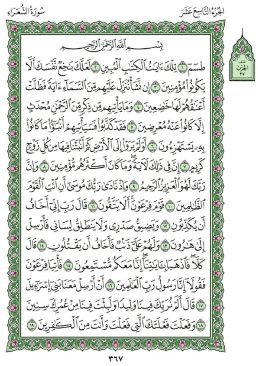 الجزء التاسع عشر
سورة الشعراء
بِسْمِ اللَّهِ الرَّحْمَٰنِ الرَّحِيمِ
طسٓمٓ ١ تِلْكَ ءَايَٰتُ ٱلْكِتَٰبِ ٱلْمُبِينِ ٢ لَعَلَّكَ بَٰخِعٌ نَّفْسَكَ أَلَّا
يَكُونُوا۟ مُؤْمِنِينَ ٣ إِن نَّشَأْ نُنَزِّلْ عَلَيْهِم مِّنَ ٱلسَّمَآءِ ءَايَةً فَظَلَّتْ
أَعْنَٰقُهُمْ لَهَا خَٰضِعِينَ ٤ وَمَا يَأْتِيهِم مِّن ذِكْرٍ مِّنَ ٱلرَّحْمَٰنِ مُحْدَثٍ
إِلَّا كَانُوا۟ عَنْهُ مُعْرِضِينَ ٥ فَقَدْ كَذَّبُوا۟ فَسَيَأْتِيهِمْ أَنۢبَٰٓؤُا۟ مَا كَانُوا۟
بِهِۦ يَسْتَهْزِءُونَ ٦ أَوَلَمْ يَرَوْا۟ إِلَى ٱلْأَرْضِ كَمْ أَنۢبَتْنَا فِيهَا مِن كُلِّ زَوْجٍ
كَرِيمٍ ٧ إِنَّ فِى ذَٰلِكَ لَءَايَةً وَمَا كَانَ أَكْثَرُهُم مُّؤْمِنِينَ ٨ وَإِنَّ
رَبَّكَ لَهُوَ ٱلْعَزِيزُ ٱلرَّحِيمُ ٩ وَإِذْ نَادَىٰ رَبُّكَ مُوسَىٰٓ أَنِ ٱئْتِ ٱلْقَوْمَ
ٱلظَّٰلِمِينَ ١٠ قَوْمَ فِرْعَوْنَ أَلَا يَتَّقُونَ ١١ قَالَ رَبِّ إِنِّىٓ أَخَافُ
أَن يُكَذِّبُونِ ١٢ وَيَضِيقُ صَدْرِى وَلَا يَنطَلِقُ لِسَانِى فَأَرْسِلْ
إِلَىٰ هَٰرُونَ ١٣ وَلَهُمْ عَلَىَّ ذَنۢبٌ فَأَخَافُ أَن يَقْتُلُونِ ١٤ قَالَ
كَلَّا فَٱذْهَبَا بِـَٔايَٰتِنَآ إِنَّا مَعَكُم مُّسْتَمِعُونَ ١٥ فَأْتِيَا فِرْعَوْنَ
فَقُولَآ إِنَّا رَسُولُ رَبِّ ٱلْعَٰلَمِينَ ١٦ أَنْ أَرْسِلْ مَعَنَا بَنِىٓ إِسْرَٰٓءِيلَ
١٧ قَالَ أَلَمْ نُرَبِّكَ فِينَا وَلِيدًا وَلَبِثْتَ فِينَا مِنْ عُمُرِكَ سِنِينَ
١٨ وَفَعَلْتَ فَعْلَتَكَ ٱلَّتِى فَعَلْتَ وَأَنتَ مِنَ ٱلْكَٰفِرِينَ ١٩
٣٦٧